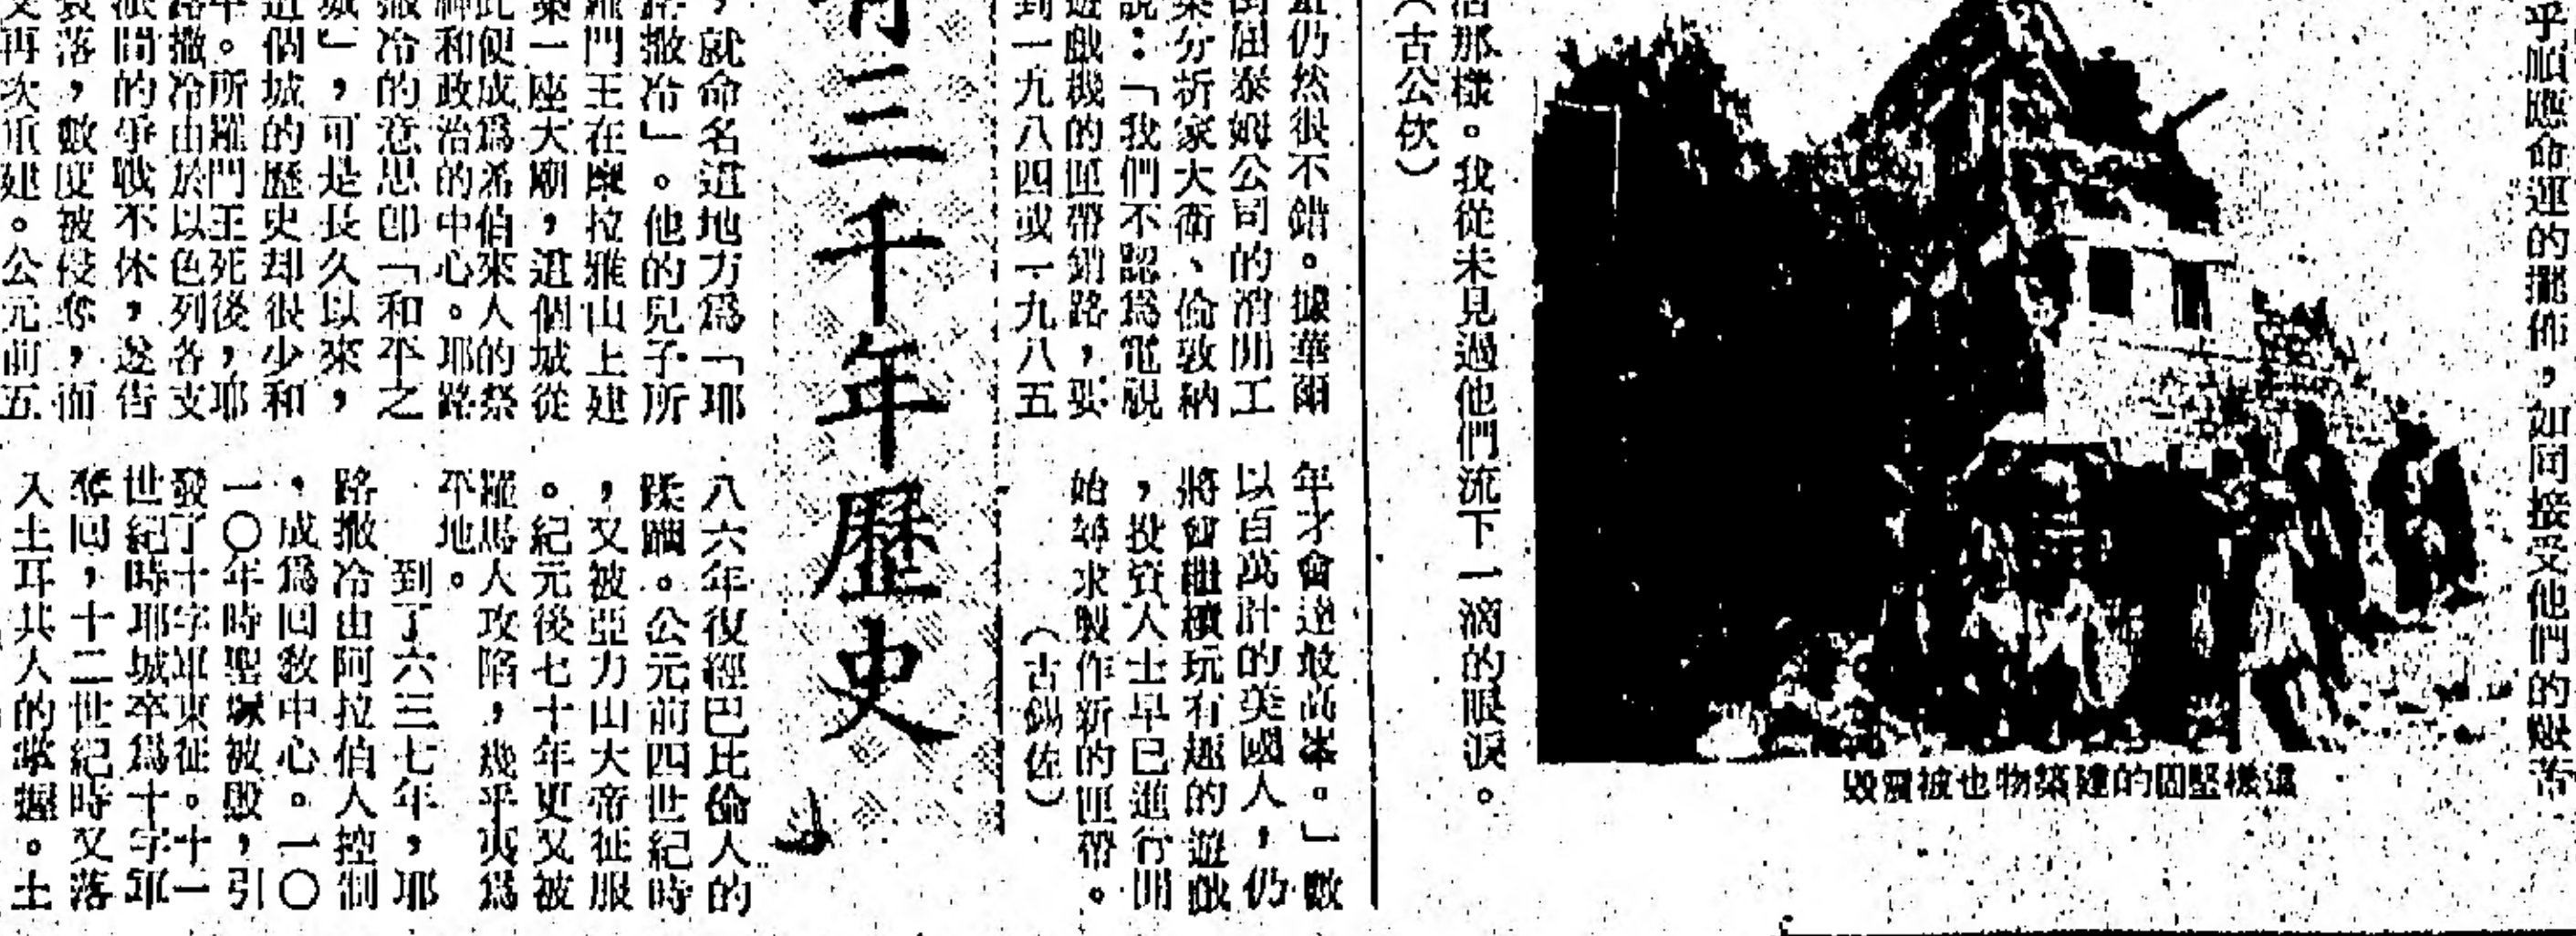 乎順應命運的擺佈，如同接受他們的眼帘
這樣堅固的建築物也被震毀
那樣。我從未見過他們流下一滴的眼淚。
（古公欽）
仍然很不錯。據華爾
街屈泰姆公司的消閒工
業分析家大衛、倫敦納
說：「我們不認爲電視
遊戲機的匣帶銷路，要
到一九八四或一九八五
年才會達最高峯。」數
以百萬計的美國人，仍
將會繼續玩有趣的遊戲
，投資人士早已進行開
始尋求製作新的匣帶。
（古錫佐）
三千年歷史
，就命名這地方爲「耶
路撒冷」。他的兒子所
羅門王在摩拉雅山上建
築一座大廟，這個城從
此便成爲希伯來人的祭
神和政治的中心。耶路
撒冷的意思卽「和平之
城」，可是長久以來，
這個城的歷史却很少和
平。所羅門王死後，耶
路撒冷由於以色列各支
派間的爭戰不休，遂告
衰落，數度被侵奪，而
又再次重建。公元前五
八六年復經巴比倫人的
蹂躪。公元前四世紀時
，又被亞力山大帝征服
。紀元後七十年更又被
羅馬人攻陷，幾乎夷爲
平地。
到了六三七年，耶
路撒冷由阿拉伯人控制
，成爲回敎中心。一〇
一〇年時聖塚被毀，引
發了十字軍東征。十一
世紀時耶城卒爲十字軍
奪回，十二世紀時又落
入土耳其人的掌握。土